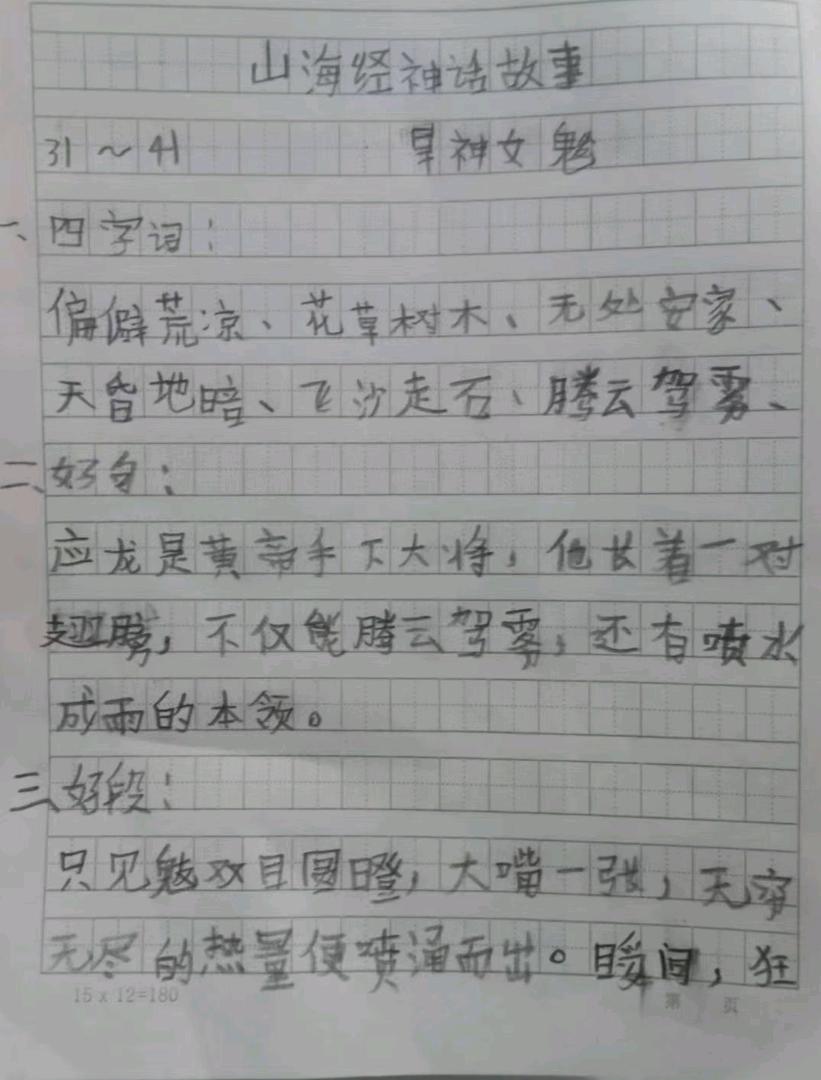 山海经神话故事
31~41 旱神女魃
一、四字词：
偏僻荒凉、花草树木、无处安家、
天昏地暗、飞沙走石、腾云驾雾、
二、好句：
应龙是黄帝手下大将，他长着一对
翅膀，不仅能腾云驾雾，还有喷水
成雨的本领。
三、好段：
只见魃双目圆瞪，大嘴一张，无穷
无尽的热量便喷涌而出。瞬间，狂
15 x 12=180 第 页